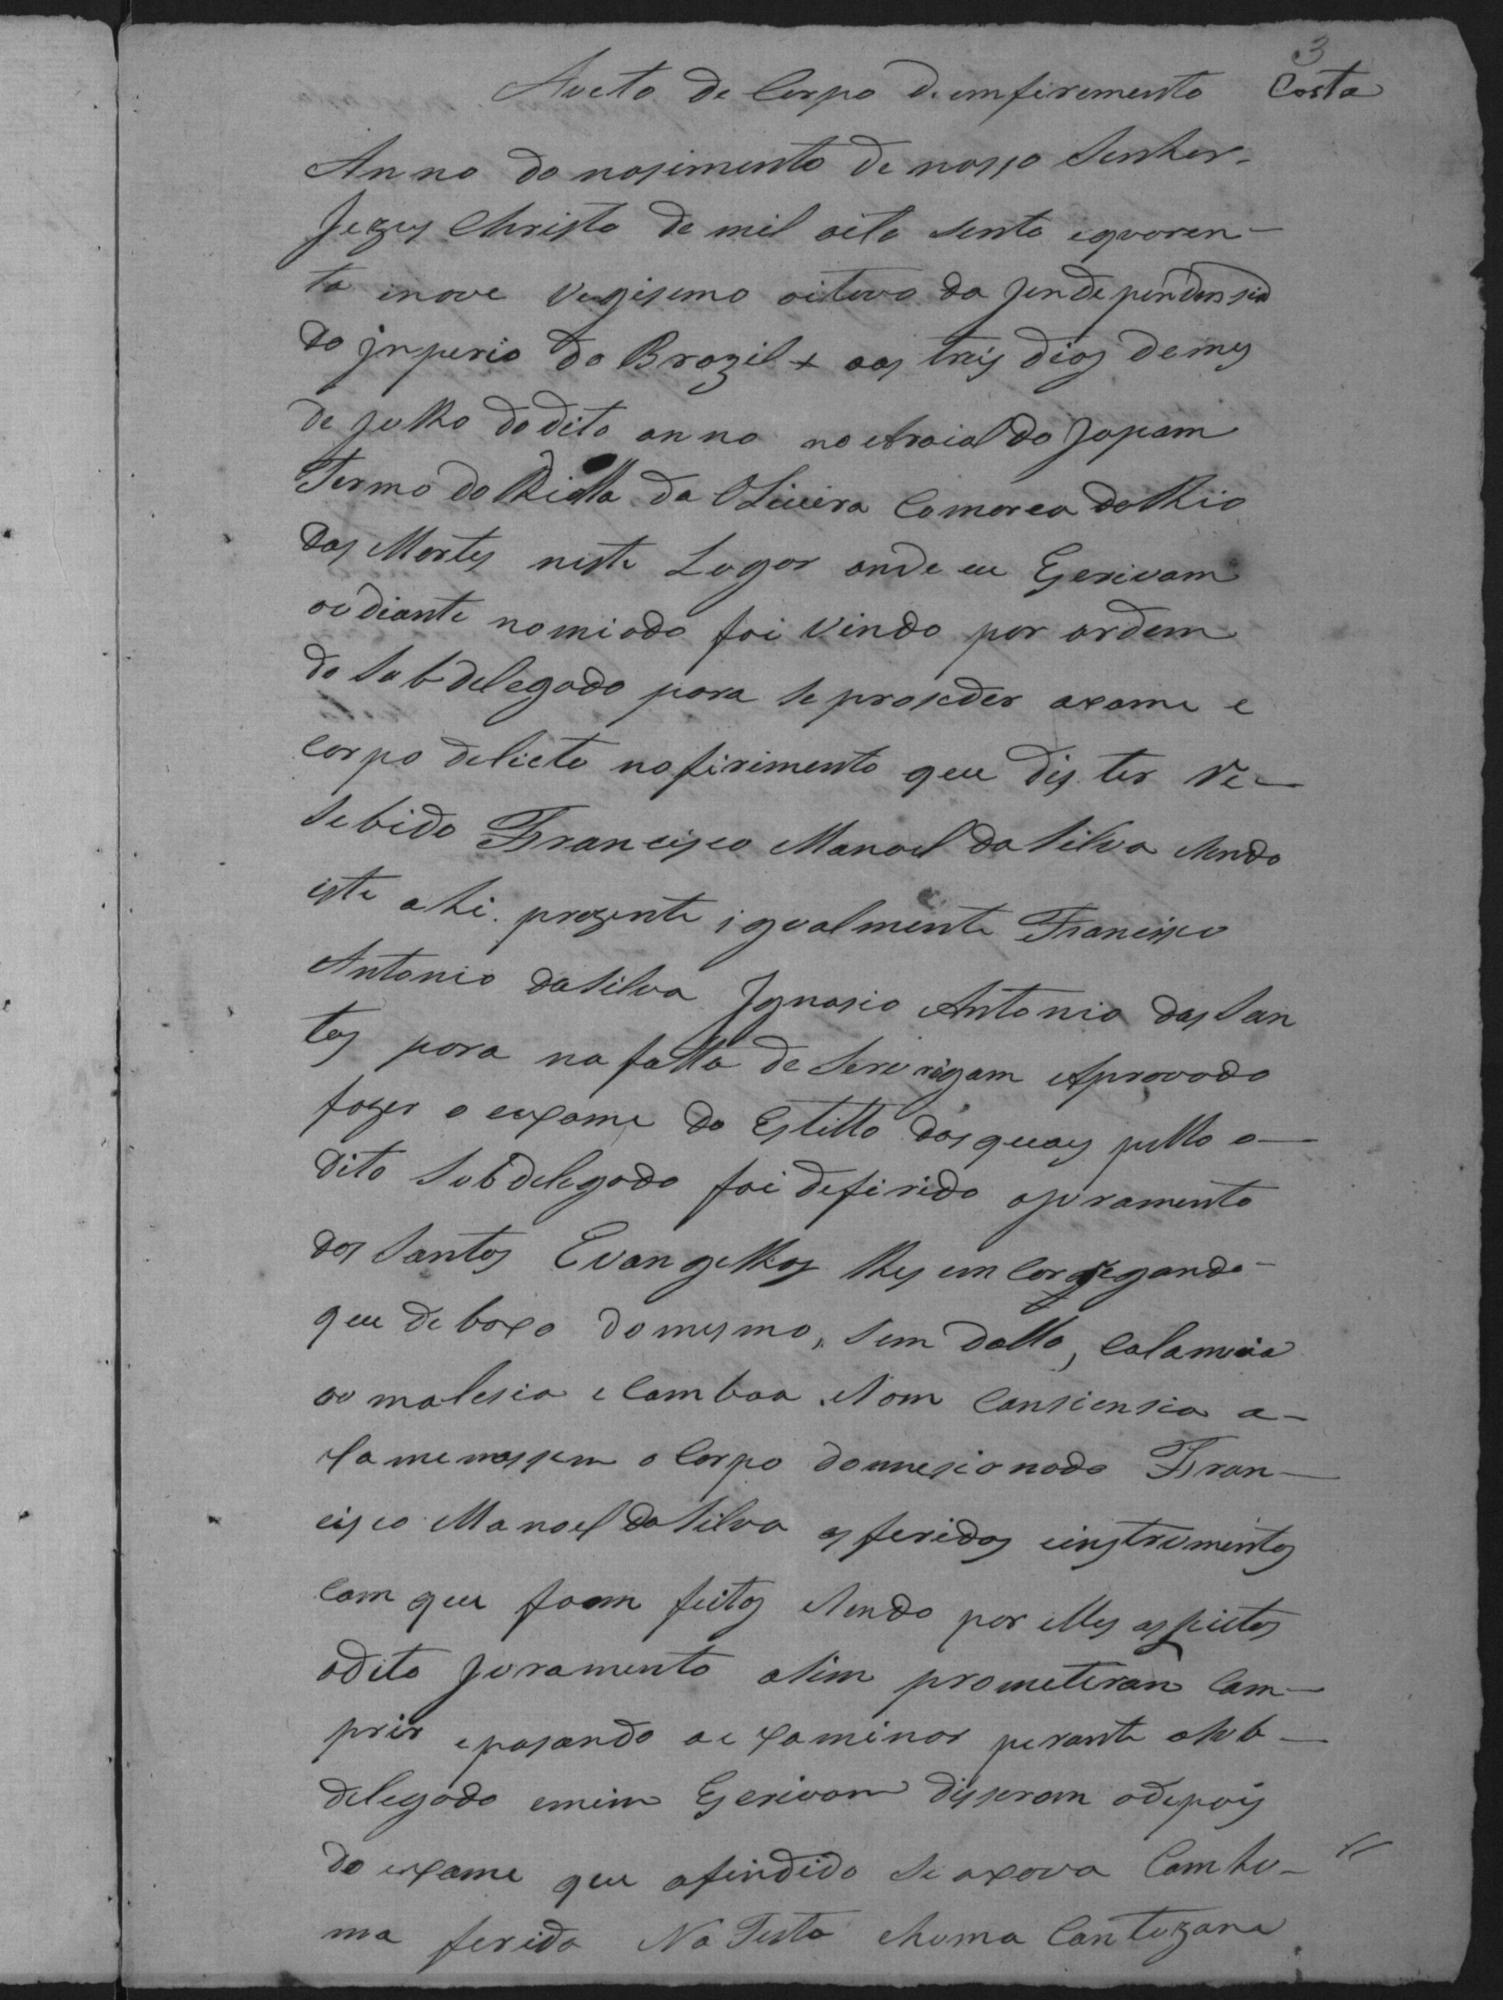 3
Costa
Aucto de Corpo d. emfiremento
Anno do nosimento de nosso Senhor
Jezus Christo de mil oito sento equoren-
ta enove vegisimo oitavo da Jendependensia
do jnperio do Brazil + aos treis dias demes
de Julho dodito anno no Araial do Japam
Termo da Villa da Oliveira Comarca do Rio
das Mortes neste Lugar onde eu Escrivam
aodiante nomiado foi vindo por ordem
do Subdelegado para se proseder axame e
Corpo delicto nofirimento que dis ter Re-
sebido Francisco Manoel da Silva sendo
este ahi prezente igualmente Francisco
Antonio da Silva Ignasio Antonio dos San
tos para na falta de Serurigam Aprovado
fazer o exzame do Estillo dos quaes pello o-
dito Subdelegado foi defirido ojuramento
dos Santos Evangelhos lhes emcorregando
que deboxo domesmo, sem dollo, Calamnia
ou malesia e Comboa e som Consiensia a-
xamenassem o Corpo domnesionado Fran-
cisco Manoel da Silva as feridas einstrumentos
Com que foram feitos sendo por elles aseitos
odito juramento asim prometeram Com-
prir epasando aexzaminar perante osub-
delegado emim Escrivam disseram odepois
do exzame que ofendido se axava Com hu-
ma ferida Na Testa ehuma Contuzam